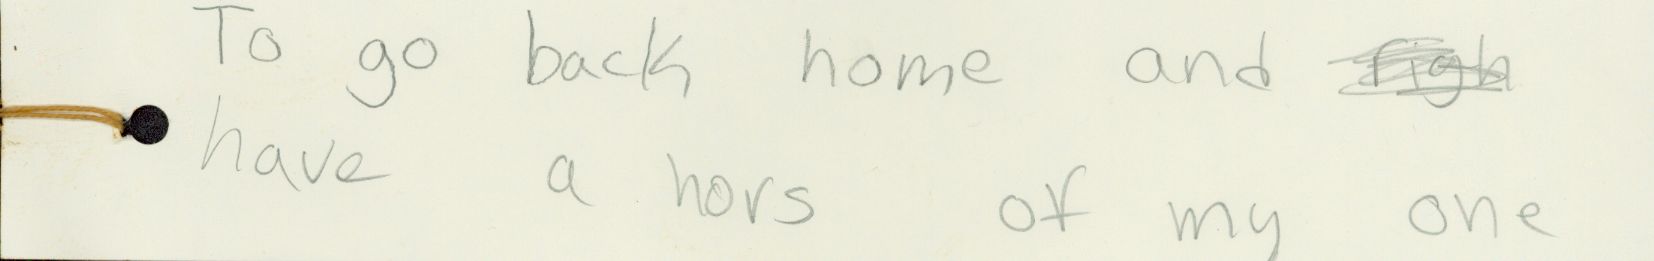 To go back home and
have a hors of my one